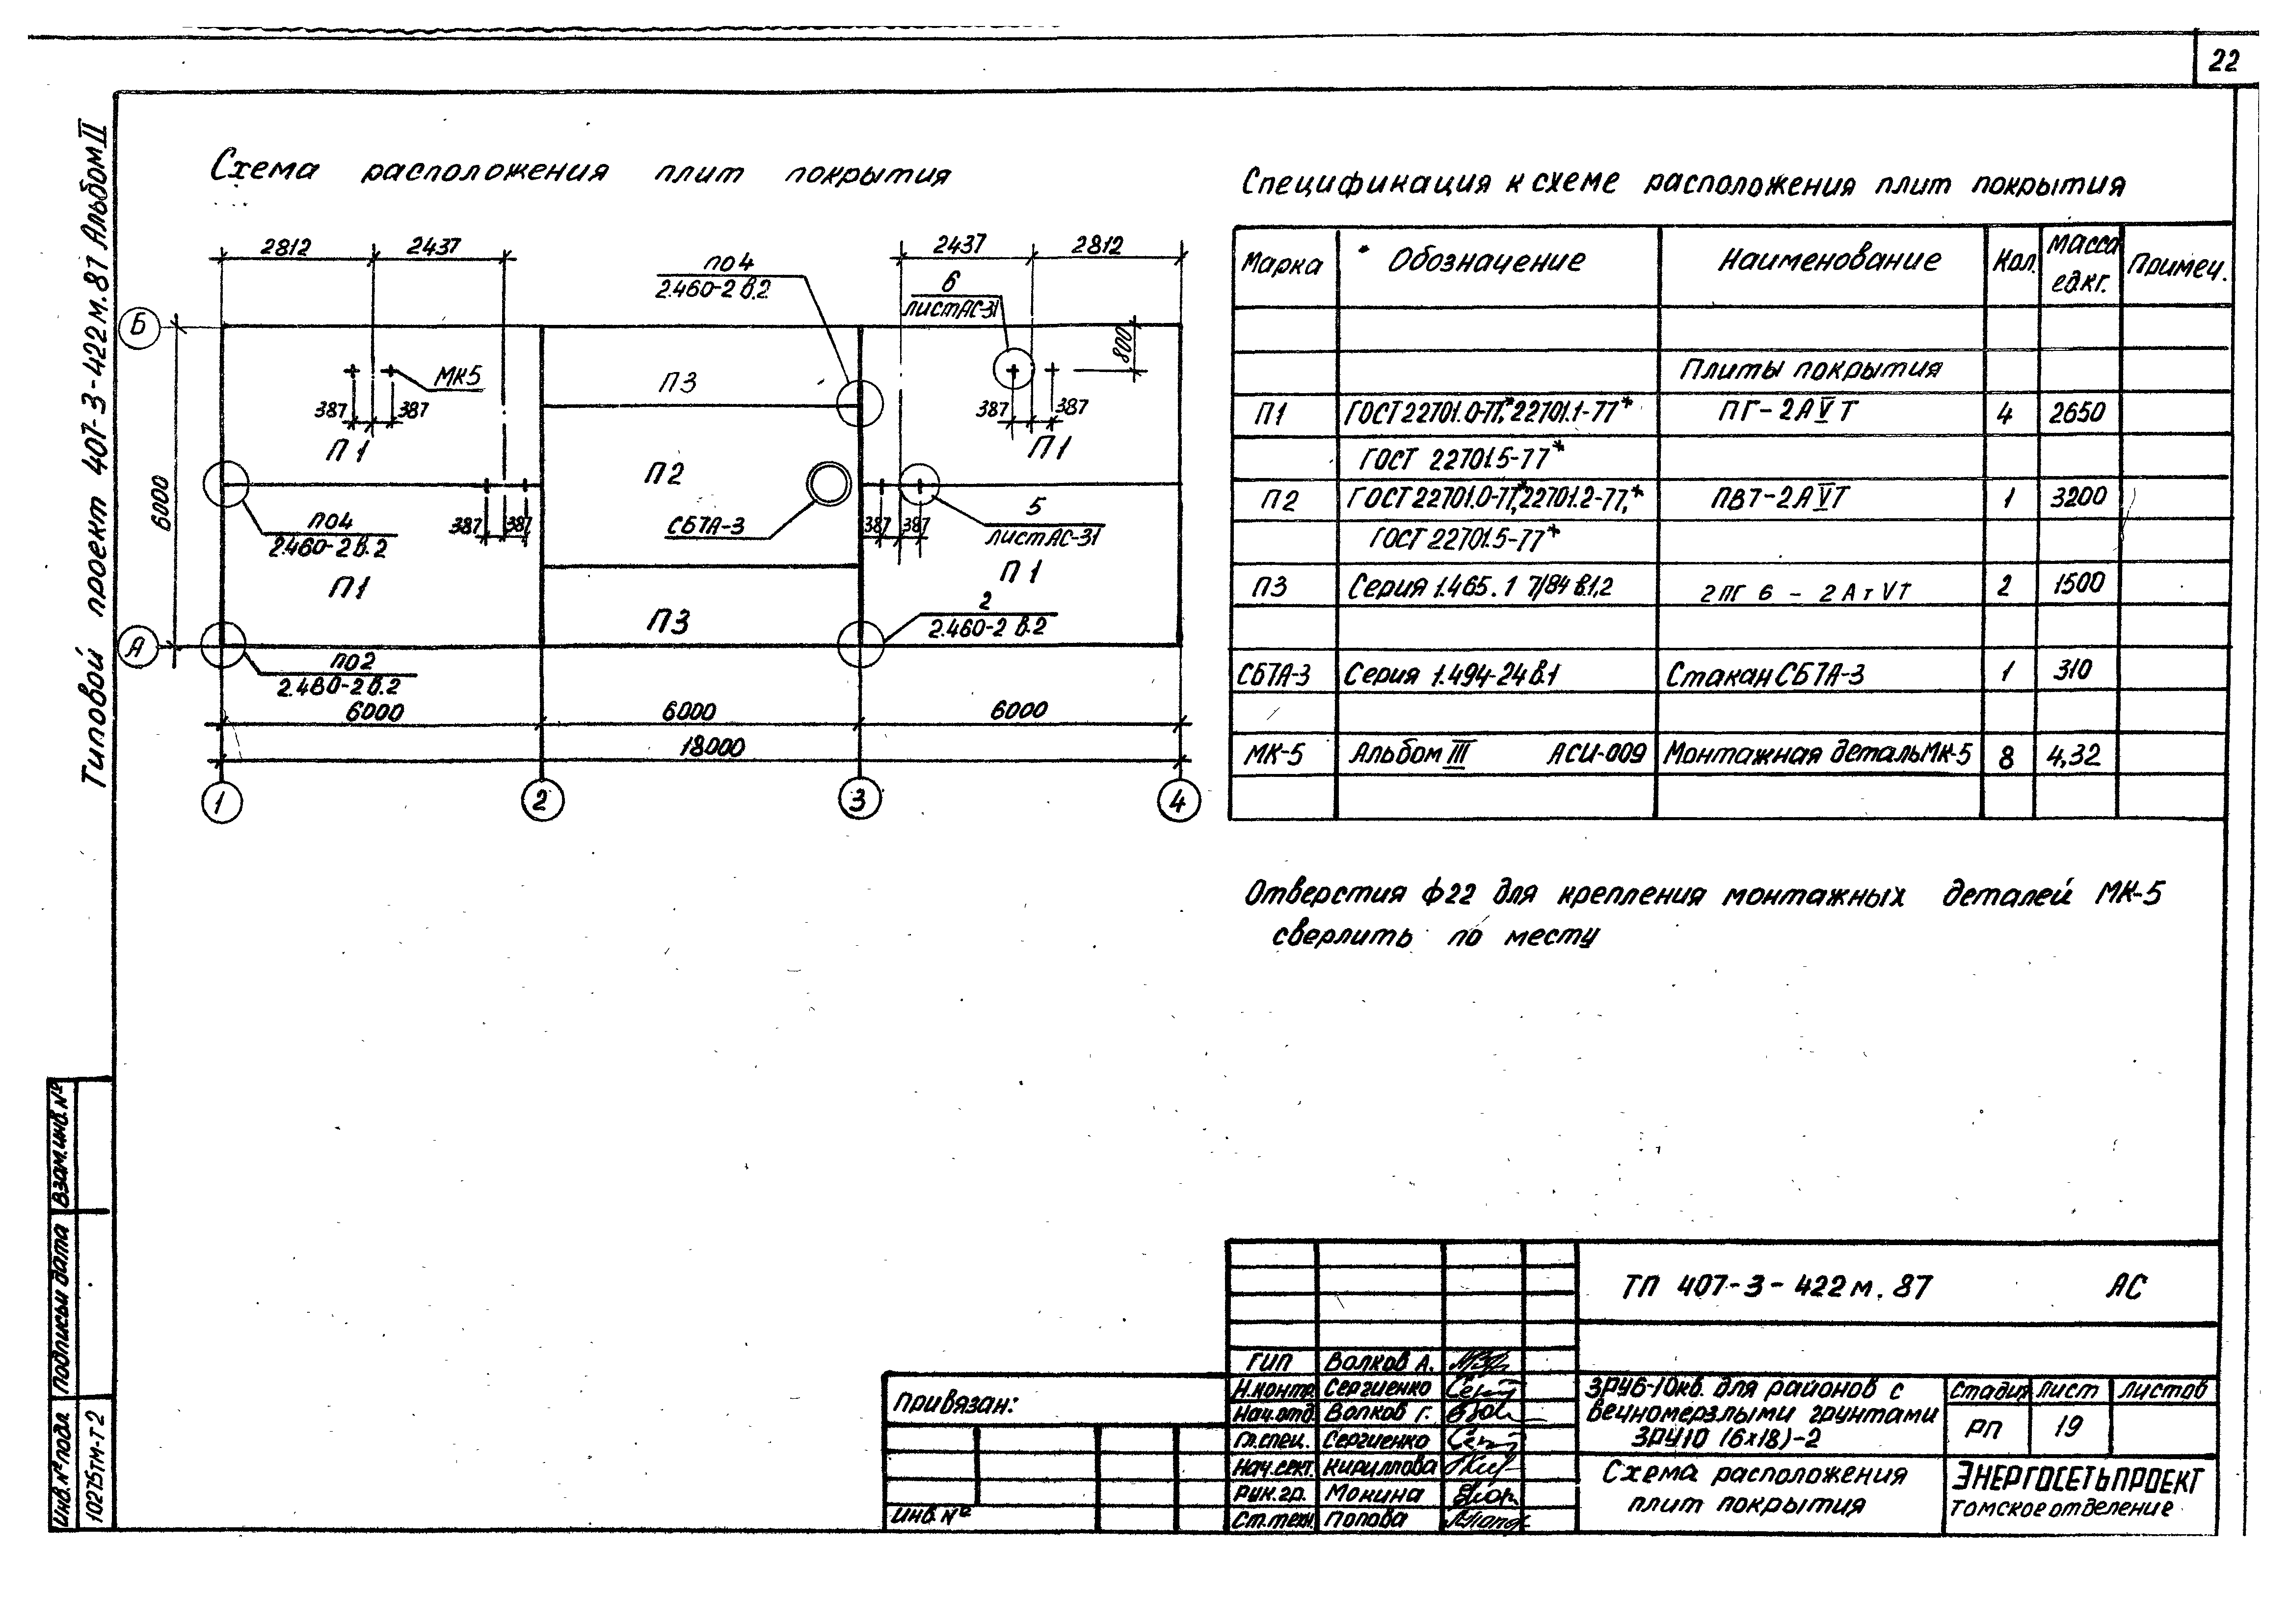 22
Типовой проект 407-3-422м.87 Альбом II
Схема расположения плит покрытия
2812 2437 2437 2812
ПО4
2.460-2 в.2
6
лист АС-31
Б
800
МК5
П3
387 387
387 387
П1
П1
П2
6000
ПО4
2.460-2 в.2
387 387
СБ7А-3
387 387
5
лист АС-31
П1
П1
2
2.460-2 в.2
П3
А
ПО2
2.480-2 в.2
6000 6000 6000
18000
1 2 3 4
Спецификация к схеме расположения плит покрытия
Марка Обозначение Наименование Кол. Масса ед.кг. Примеч.
Плиты покрытия
П1 ГОСТ 22701.0-77,* 22701.1-77* ПГ-2АVТ 4 2650
ГОСТ 22701.5-77*
П2 ГОСТ 22701.0-77,* 22701.2-77,* ПВ7-2АVТ 1 3200
ГОСТ 22701.5-77*
П3 Серия 1.465.1 7/84 в.1,2 2ПГ 6 - 2АтVТ 2 1500
СБ7А-3 Серия 1.494-24 в.1 Стакан СБ7А-3 1 310
МК-5 Альбом III АСИ-009 Монтажная деталь МК-5 8 4,32
Отверстия ф22 для крепления монтажных деталей МК-5
сверлить по месту
Взам.инв.№
Подпись и дата
Инв.№подл.
10275тм-т2
Привязан:
Инв.№
ТП 407-3-422м.87 АС
ГИП Волков А.
Н.контр. Сергиенко
Нач.отд. Волков Г.
Гл.спец. Сергиенко
Нач.сект. Кириллова
Рук.гр. Монина
Ст.техн. Попова
ЗРУ6-10кв. для районов с
вечномерзлыми грунтами
ЗРУ10 (6х18)-2
Стадия Лист Листов
РП 19
Схема расположения
плит покрытия
ЭНЕРГОСЕТЬПРОЕКТ
Томское отделение